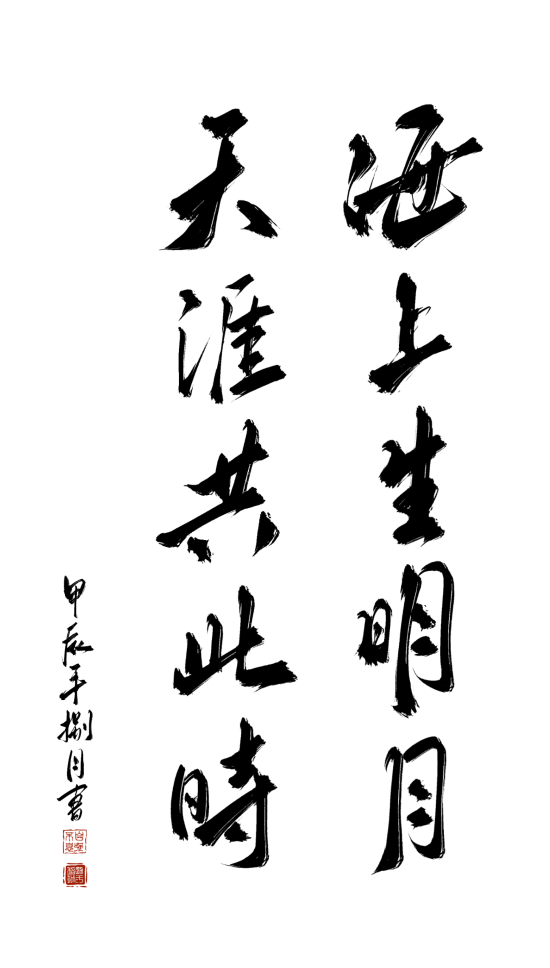 海上生明月
天涯共此時
甲辰年捌月書